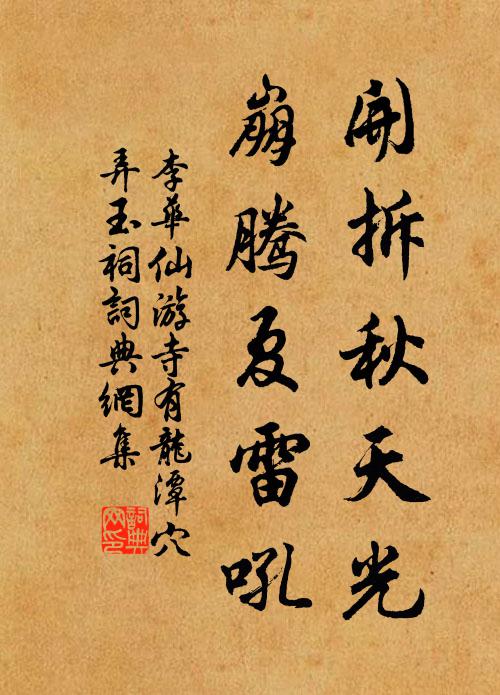 開拆秋天光
崩騰夏雷吼
李華仙游寺有龍潭穴
弄玉祠詞典網集
詞典網印